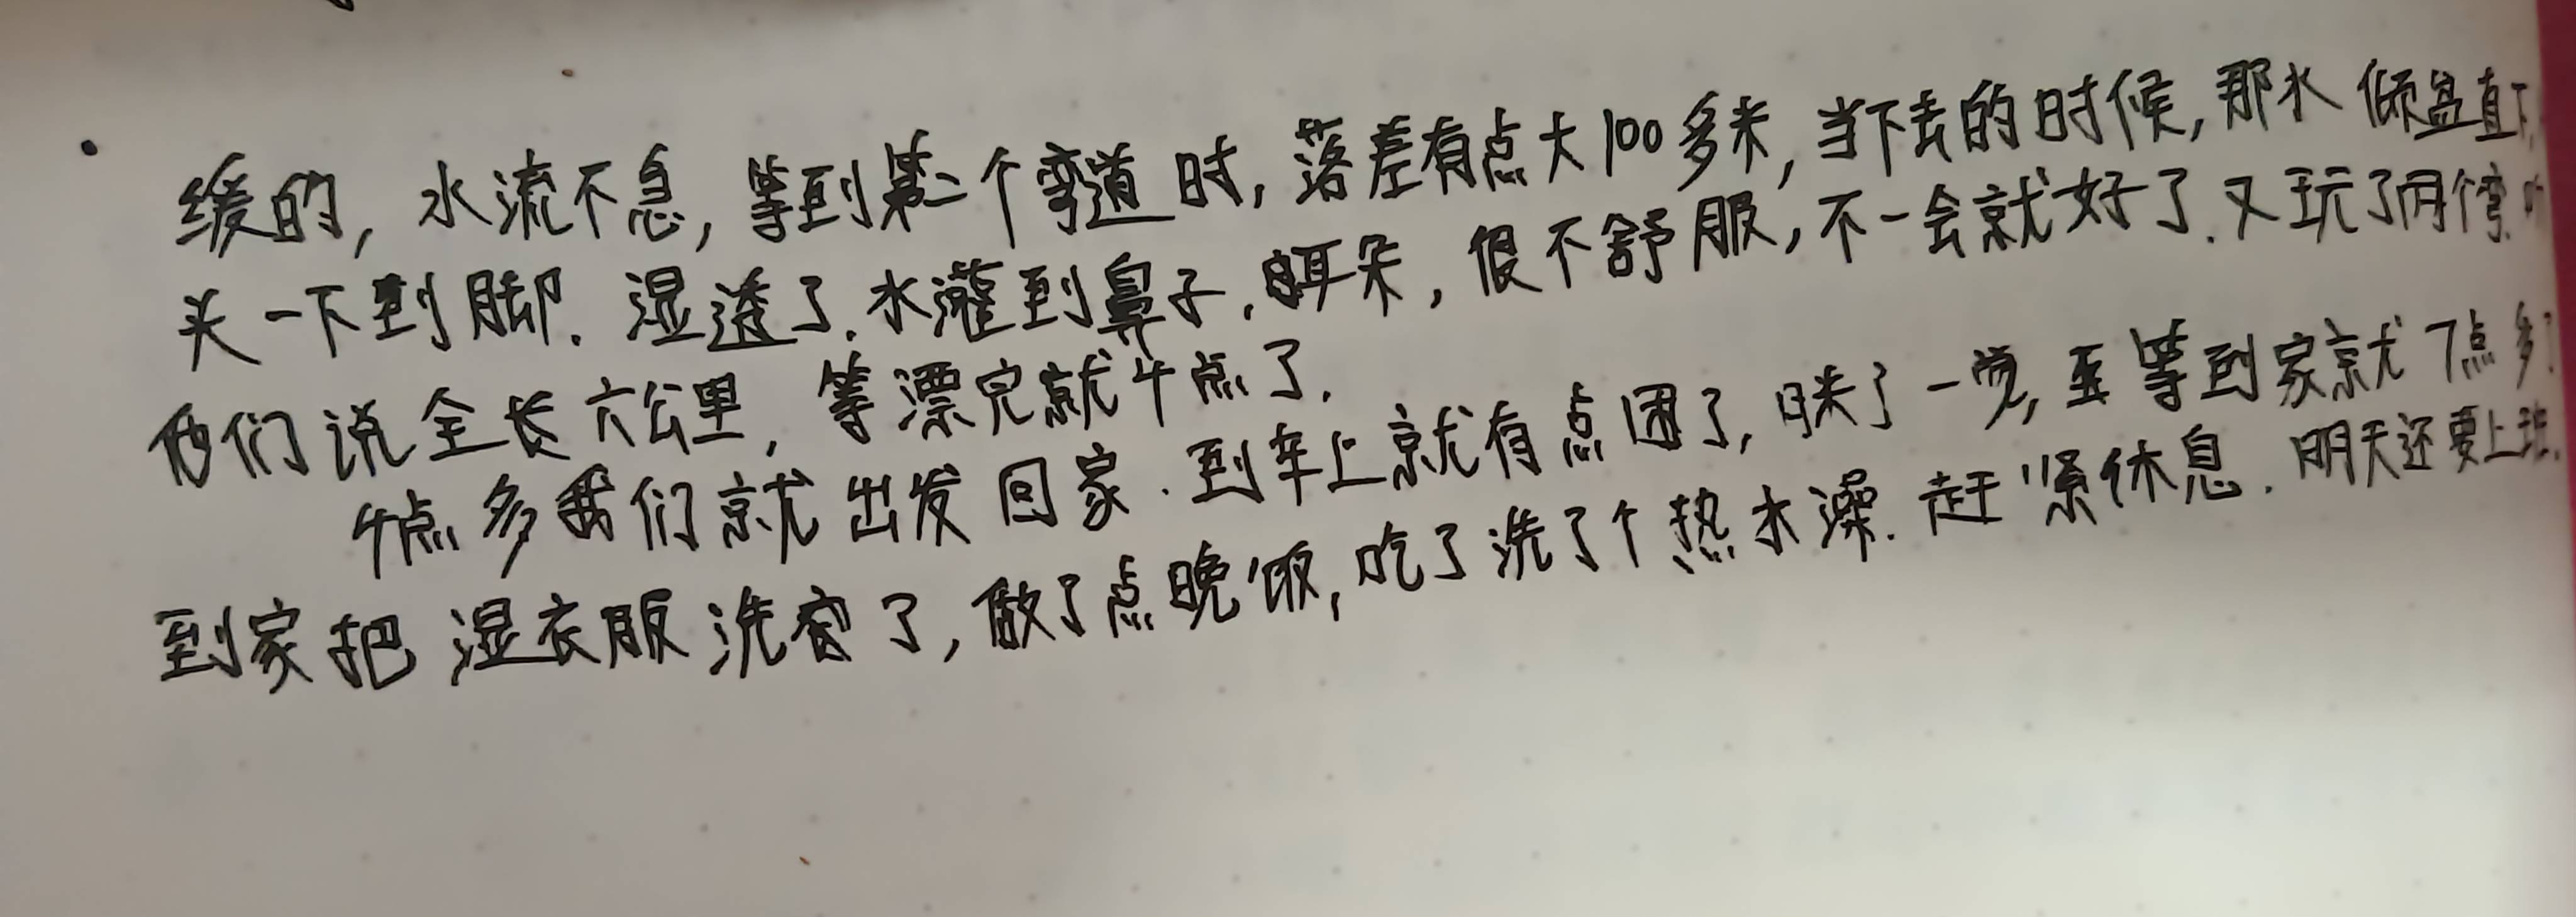 缓的，水流不急，等到第二个弯道时，落差有点大100多米，当下去的时候，那水倾盆直下，
头一下到脚．湿透了．水灌到鼻子．耳朵，很不舒服，不一会就好了．又玩了两个弯
他们说全长六公里，等漂完就4点了．
4点多我们就出发回家．到车上就有点困了，眯了一觉，等到家就7点多
到家把湿衣服洗了，做了点晚饭，吃了洗了个热水澡．赶紧休息．明天还要上班．